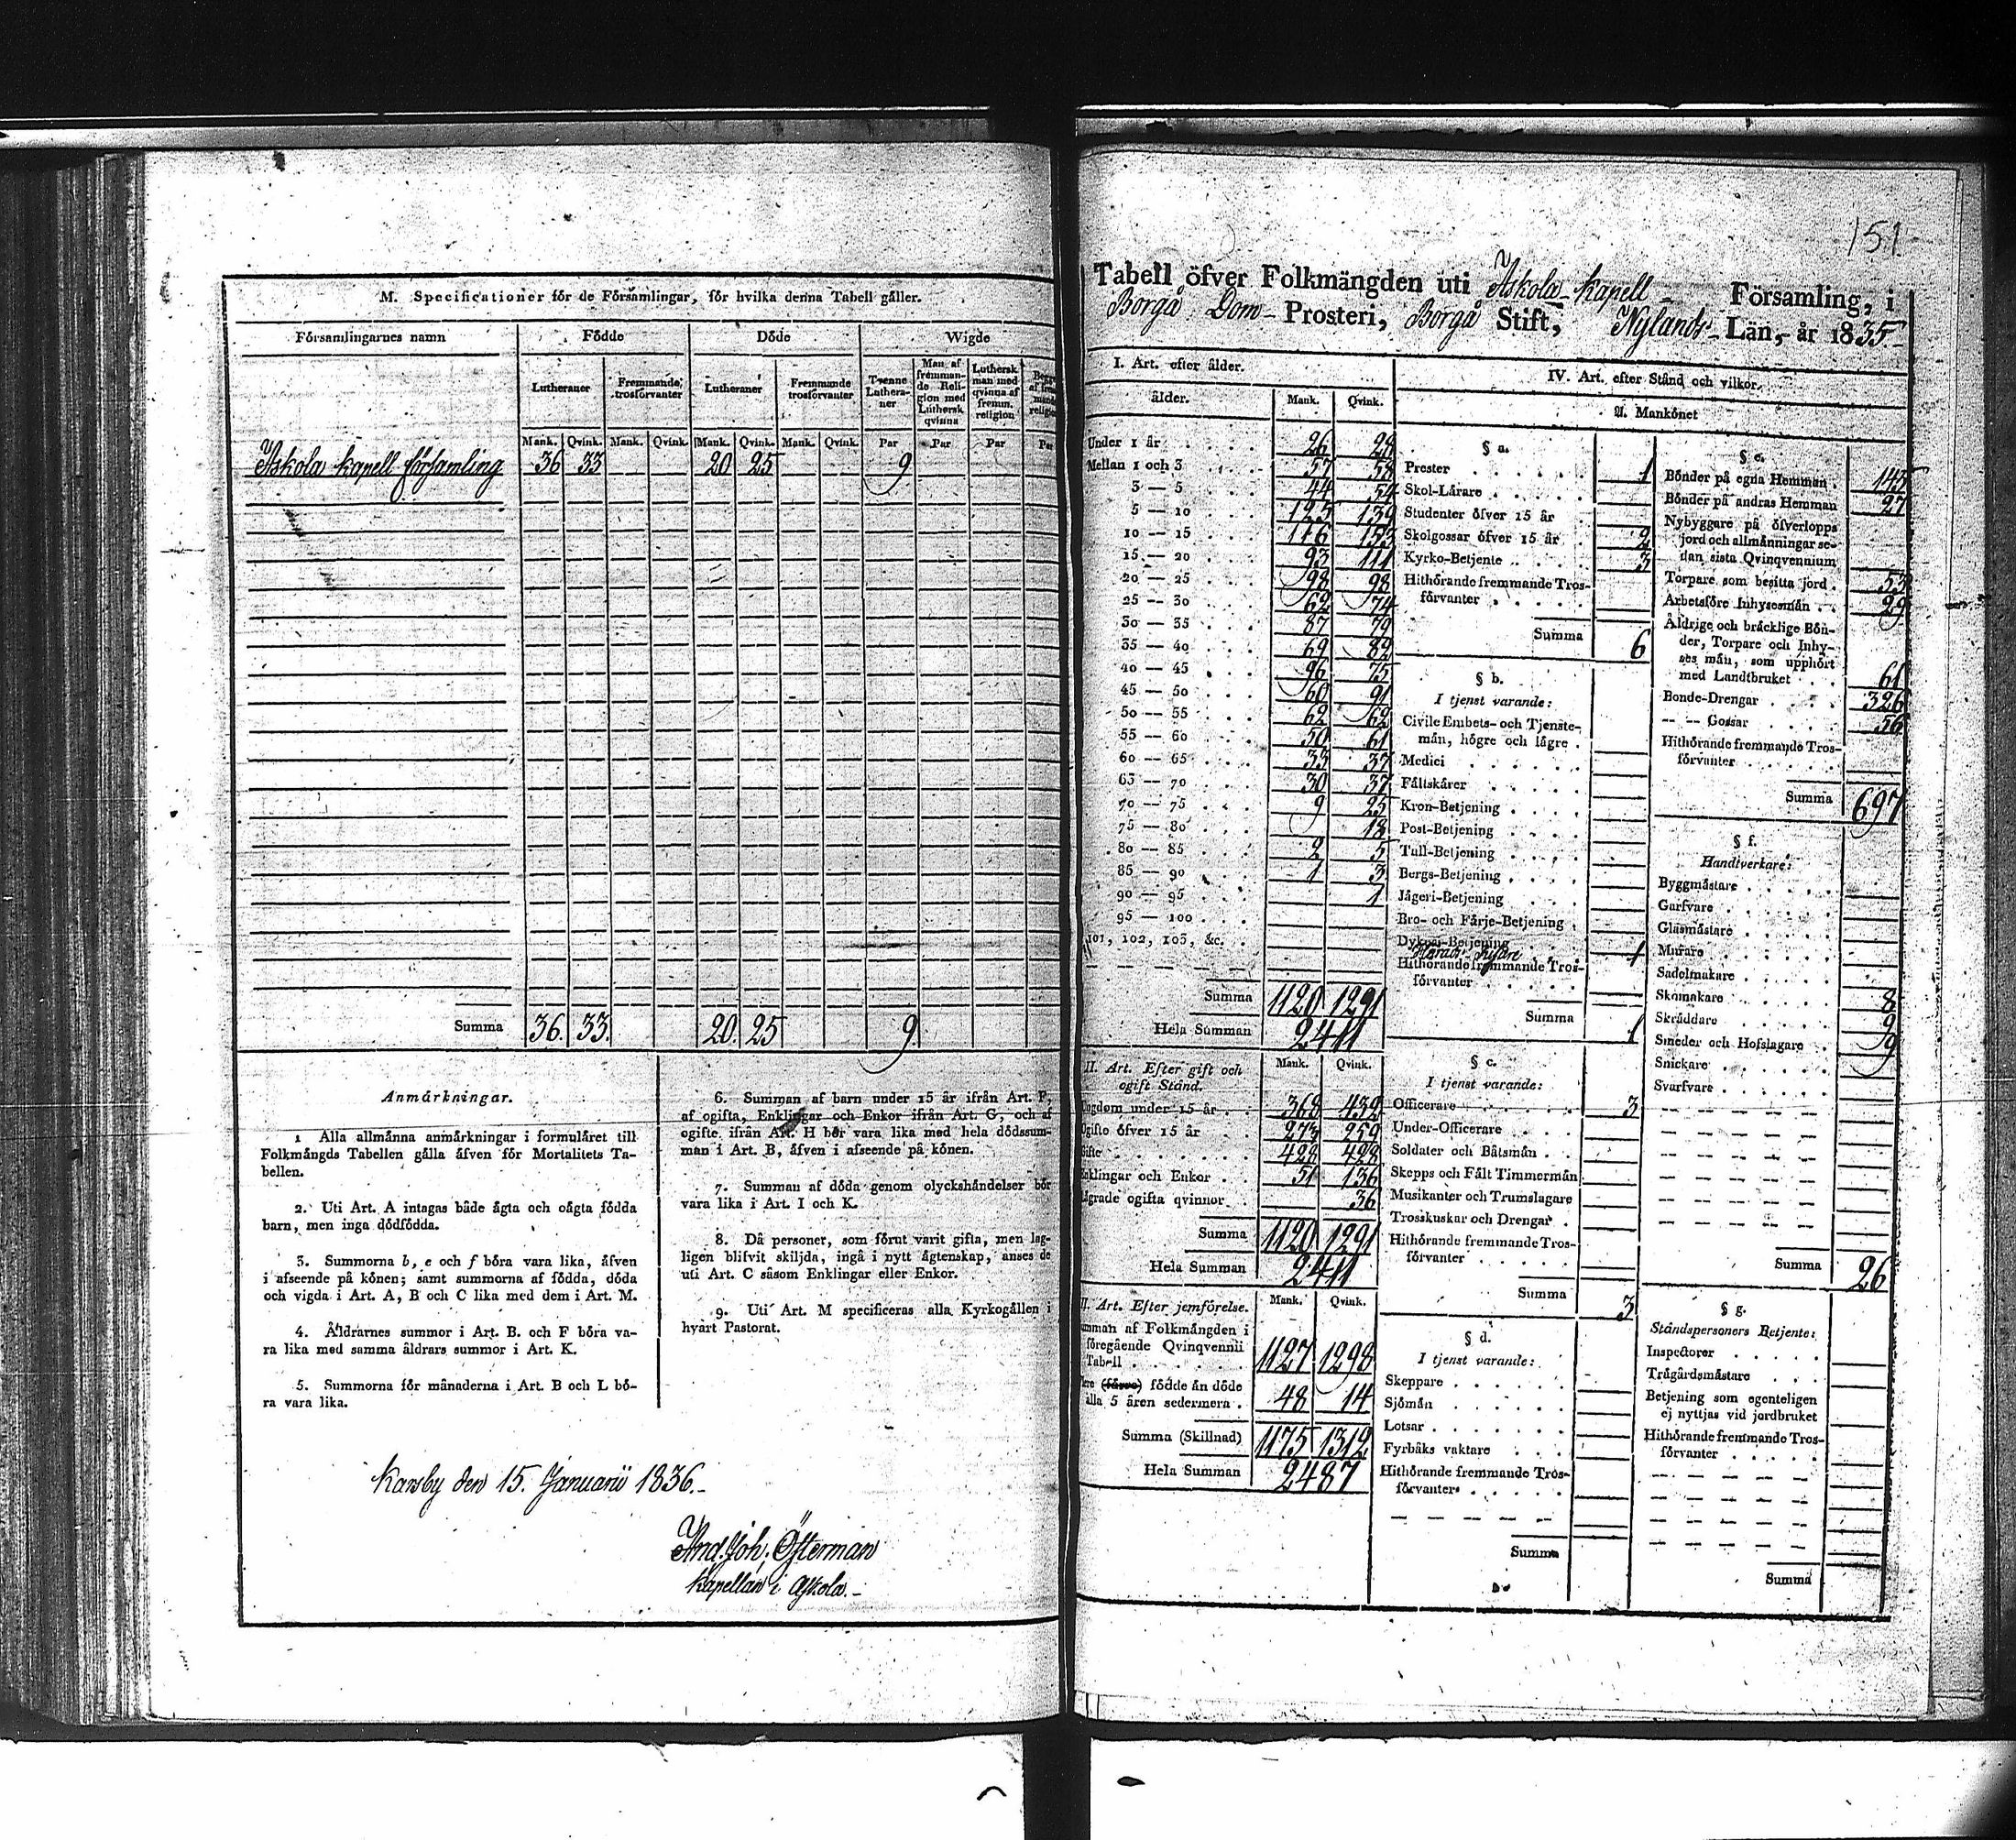 M. Specificationer för de Församlingar, för hvilka denna Tabell gäller.
Församlingarnes namn | Födde | Döde | Wigde
Lutheraner | Fremmande trosförvanter | Lutheraner | Fremmande trosförvanter | Tvenne Lutheraner | Man af fremmande Religion med Luthersk qvinna | Luthersk man med qvinna af fremm. religion
Mank. Qvink. Mank. Qvink. Mank. Qvink. Mank. Qvink. Par Par Par Par
Askola kapell församling 36 33 20 25 9
Summa 36. 33. 20. 25 9
Anmärkningar.
1 Alla allmänna anmärkningar i formuläret till
Folkmängds Tabellen gälla äfven för Mortalitets Ta-
bellen.
2. Uti Art. A intagas både ägta och oägta födda
barn, men inga dödfödda.
3. Summorna b, e och f böra vara lika, äfven
i afseende på könen; samt summorna af födda, döda
och vigda i Art. A, B och C lika med dem i Art. M.
4. Åldrarnes summor i Art. B. och F böra va-
ra lika med samma åldrars summor i Art. K.
5. Summorna för månaderna i Art. B och L bö-
ra vara lika.
6. Summan af barn under 15 år ifrån Art. F,
af ogifta, Enklingar och Enkor ifrån Art. G, och af
ogifte ifrån Art. H bör vara lika med hela dödssum-
man i Art. B, äfven i afseende på könen.
7. Summan af döda genom olyckshändelser bör
vara lika i Art. I och K.
8. Då personer, som förut varit gifta, men lag-
ligen blifvit skiljda, ingå i nytt ägtenskap, anses de
uti Art. C såsom Enklingar eller Enkor.
9. Uti Art. M specificeras alla Kyrkogällen i
hvart Pastorat.
Karsby den 15. Januarii 1836.
And. Joh. Österman
Kapellan i Askola.
151
Tabell öfver Folkmängden uti Askola kapell Församling, i
Borgå Dom- Prosteri, Borgå Stift, Nylands Län, år 1835
I. Art. efter ålder.
ålder. Mank. Qvink.
Under 1 år 26 28
Mellan 1 och 3 57 58
3 — 5 44 54
5 — 10 125 139
10 — 15 116 153
15 — 20 93 111
20 — 25 98 98
25 — 30 62 74
30 — 35 87 79
35 — 40 69 82
40 — 45 96 75
45 — 50 60 91
50 — 55 62 62
55 — 60 50 61
60 — 65 33 37
65 — 70 30 37
70 — 75 9 25
75 — 80 18
80 — 85 2 5
85 — 90 1 3
90 — 95 1
95 — 100
101, 102, 103, &c.
Summa 1120 1291
Hela Summan 2411
II. Art. Efter gift och
ogift Stånd. Mank. Qvink.
Ungdom under 15 år 368 432
Ogifte öfver 15 år 273 259
Gifte 428 428
Enklingar och Enkor 51 136
ogifta qvinnor 36
Summa 1120 1291
Hela Summan 2411
Art. Efter jemförelse. Mank. Qvink.
Summan af Folkmängden i
föregående Qvinqvennii
Tabell 1127 1298
(färre) födde än döde
alla 5 åren sedermera 48 14
Summa (Skillnad) 1175 1312
Hela Summan 2487
IV. Art. efter Stånd och vilkor.
A. Mankönet
§ a.
Prester 1
Skol-Lärare
Studenter öfver 15 år
Skolgossar öfver 15 år 2
Kyrko-Betjente 3
Hithörande fremmande Tros-
förvanter
Summa 6
§ b.
I tjenst varande:
Civile Embets- och Tjenste-
män, högre och lägre
Medici
Fältskärer
Kron-Betjening
Post-Betjening
Tull-Betjening
Bergs-Betjening
Jägeri-Betjening
Bro- och Färje-Betjening
Dykeri-Betjening
Hithörande fremmande Tros-
förvanter
1
Summa 1
§ c.
I tjenst varande:
Officerare 3
Under-Officerare
Soldater och Båtsmän
Skepps och Fält Timmermän
Musikanter och Trumslagare
Trosskuskar och Drengar
Hithörande fremmande Tros-
förvanter
Summa 3
§ d.
I tjenst varande:
Skeppare
Sjömän
Lotsar
Fyrbåks vaktare
Hithörande fremmande Tros-
förvanter
Summa
§ e.
Bönder på egna Hemman 145
Bönder på andras Hemman 27
Nybyggare på öfverlopps
jord och allmänningar se-
dan sista Qvinqvennium
Torpare som besitta jord 53
Arbetsföre Inhysesmän 29
Åldrige och bräcklige Bön-
der, Torpare och Inhy-
ses män, som upphört
med Landtbruket 61
Bonde-Drengar 326
— — Gossar 56
Hithörande fremmande Tros-
förvanter
Summa 697
§ f.
Handtverkare:
Byggmästare
Garfvare
Glasmästare
Murare
Sadelmakare
Skomakare 8
Skräddare 9
Smeder och Hofslagare 9
Snickare
Svarfvare
Summa 26
§ g.
Ståndspersoners Betjente:
Inspectorer
Trägårdsmästare
Betjening som egenteligen
ej nyttjas vid jordbruket
Hithörande fremmande Tros-
förvanter
Summa